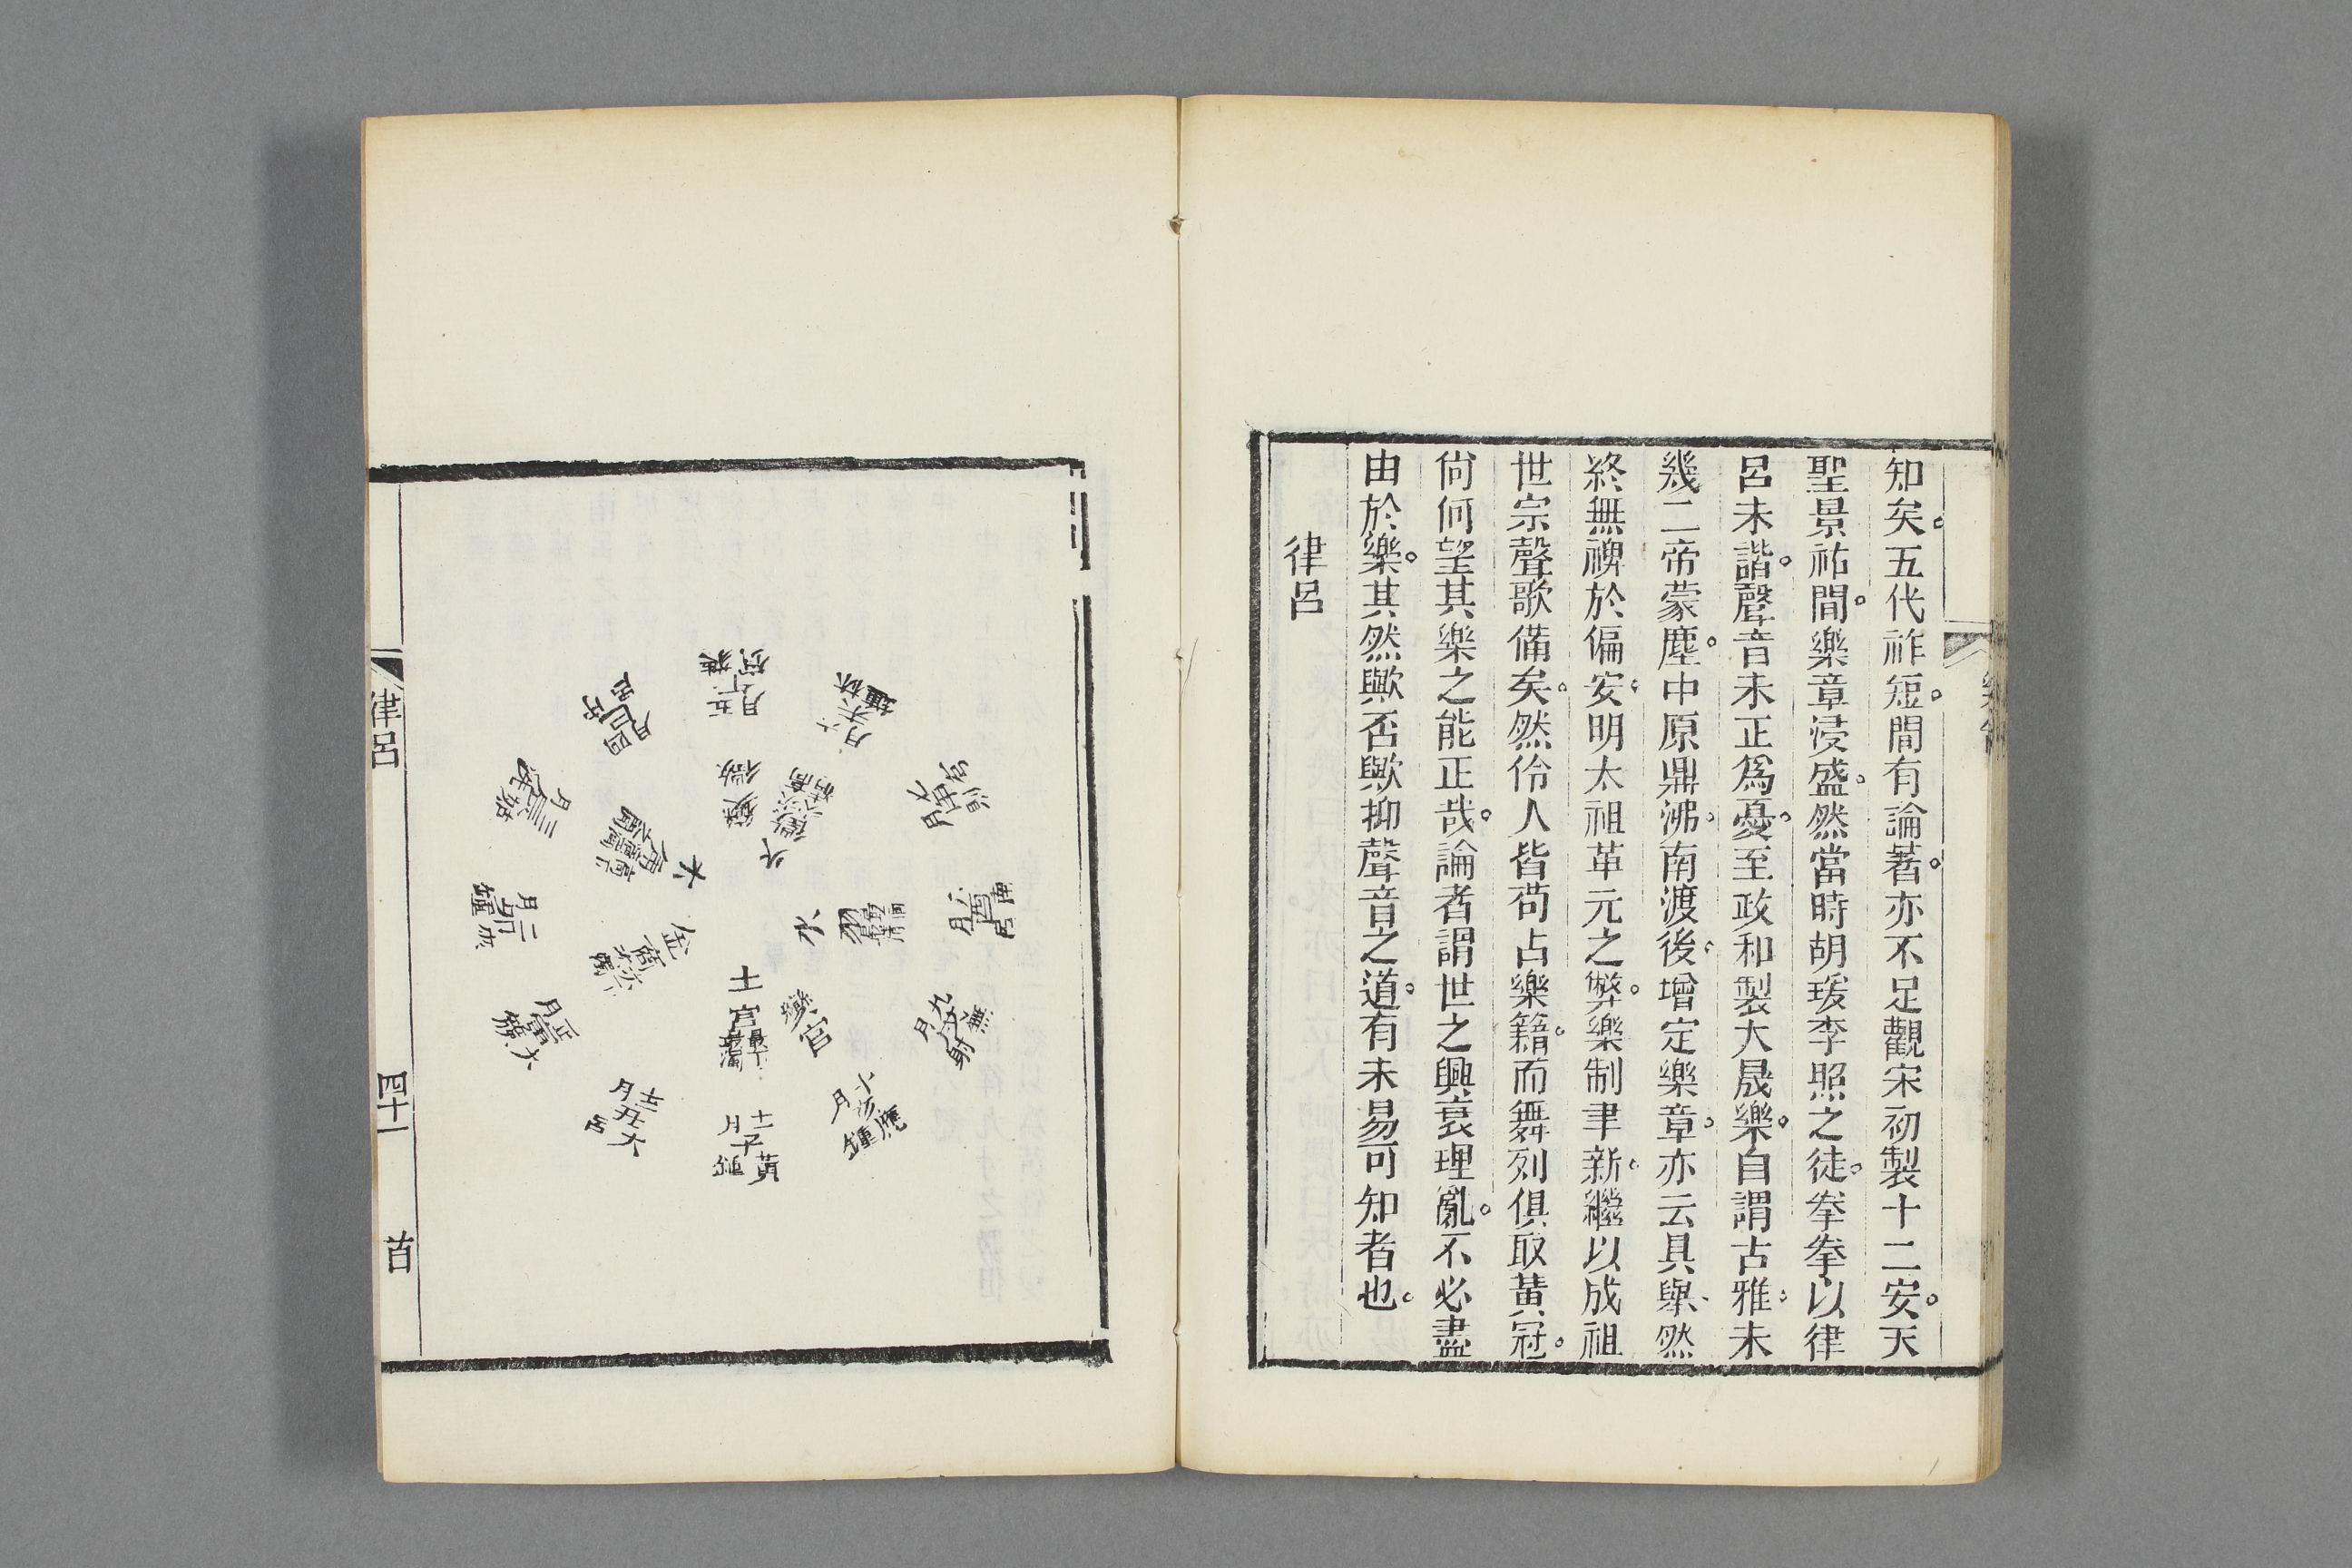 知矣。五代祚短。間有論著。亦不足觀宋初製十二安。天
聖景祐間。樂章浸盛。然當時胡瑗李照之徒。拳拳以律
呂未諧。聲音未正爲憂。至政和製大晟樂。自謂古雅。未
幾二帝蒙塵。中原鼎沸。南渡後。增定樂章。亦云具舉、然
終無禆於偏安。明太祖革元之弊。樂制聿新。繼以成祖
世宗聲歌備矣。然伶人皆苟占樂籍。而舞列俱取黃冠。
尙何望其樂之能正哉。論者謂世之興衰理亂。不必盡
由於樂。其然歟否歟抑聲音之道。有未易可知者也。
律呂
五月午蕤賓
六月未
四月巳
三月辰姑洗
二月卯夾鐘
正月寅太簇
十二月丑大呂
十一月子黃鐘
應鐘
九月戌無射
八月酉南呂
變徵
火徵
木角
金商
水羽
土宮
變宮
律呂
四十一
首